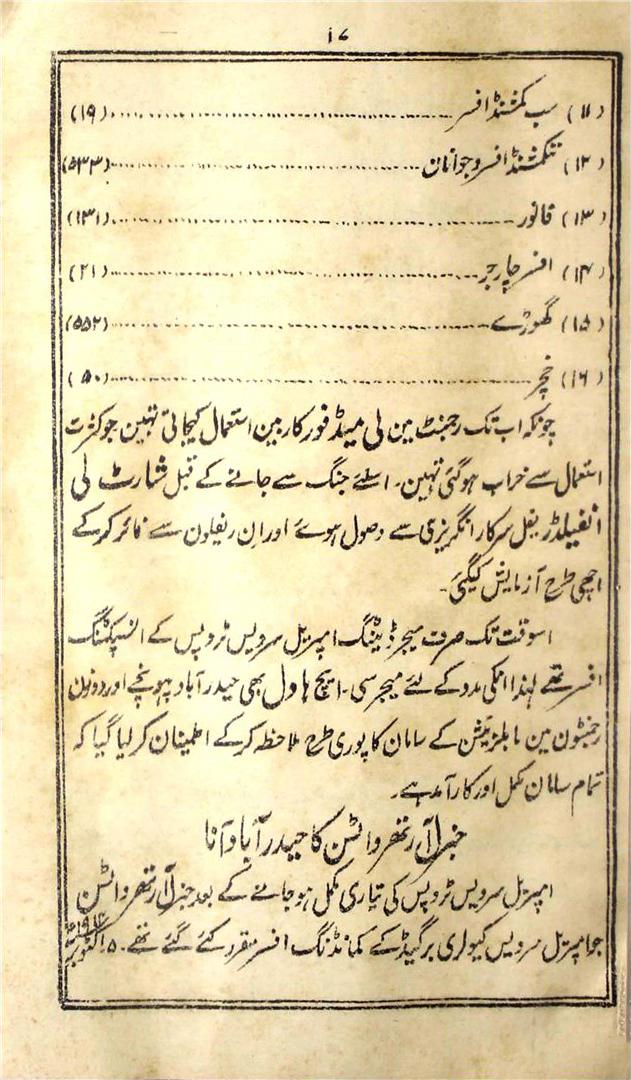 ۱۷
(۱۱) سب کمشنڈ افسر (۱۹)
(۱۲) ننکمشنڈ افسر و جوانان (۵۳۳)
(۱۳) فالور (۱۳۱)
(۱۴) افسر چارجر (۲۱)
(۱۵) گھوڑے (۵۵۲)
(۱۶) خچر (۵۰)
چونکہ اب تک رجمنٹ مین لی میٹفورڈ کاربین استعمال کیجاتی تہین جو کثرت
استعمال سے خراب ہوگئی تہین۔ اسلئے جنگ سے جانے کے قبل شارٹ لی
انفیلڈ ریفل سرکار انگریزی سے وصول ہوئے اور ان ریفلون سے فائر کرکے
اچھی طرح آزمایش کیگئی۔
اسوقت تک صرف میجر ڈیننگ امپریل سرویس ٹروپس کے انسپکٹنگ
افسر تھے لہذا انکی مدد کے لئے میجر سی۔ ایچ ہاول بھی حیدرآباد پہونچے اور دونون
رجمنٹون مین مابلزیشن کے سامان کا پوری طرح ملاحظہ کرکے اطمینان کر لیا گیا کہ
تمام سامان مکمل اور کارآمد ہے۔
جنرل آرتھر واٹسن کا حیدرآباد آنا
امپریل سرویس ٹروپس کی تیاری مکمل ہو جانے کے بعد جنرل آرتھر واٹسن
جو امپریل سرویس کیولری برگیڈ کے کمانڈنگ افسر مقرر کئے گئے تھے۔ ۵ اکٹوبر ۱۹۱۴ء